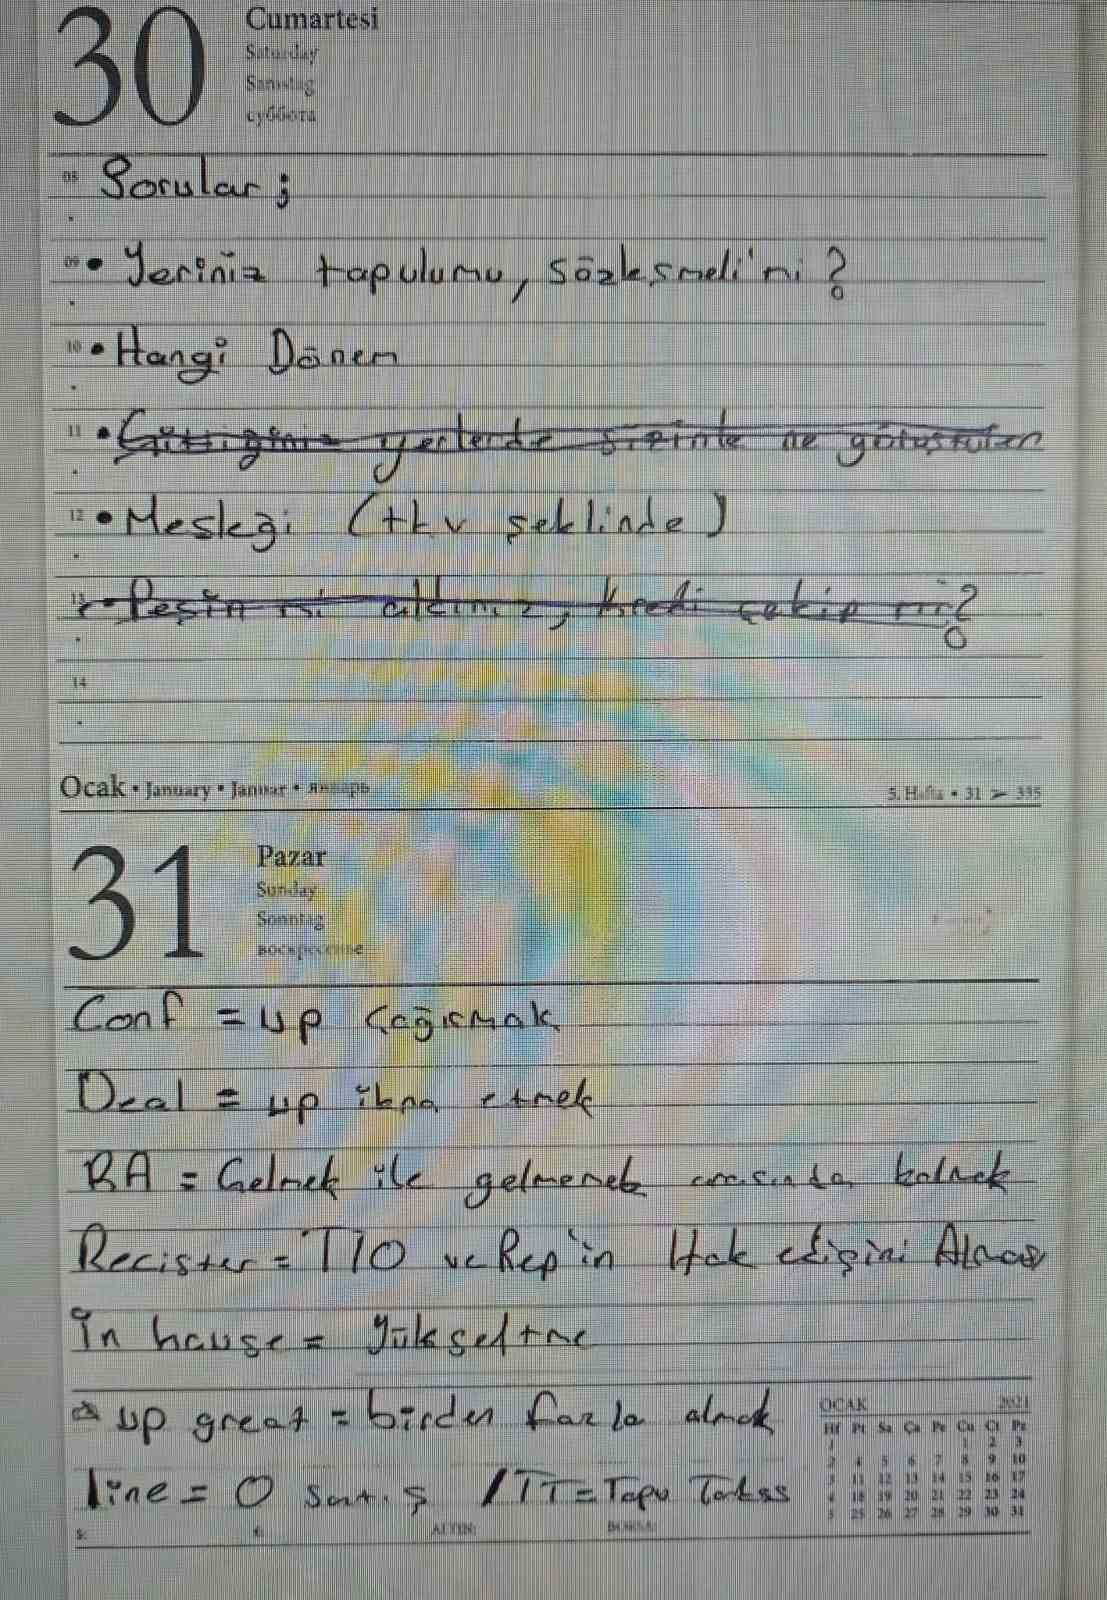 30 Cumartesi
Saturday
Samstag
суббота
08 Sorular ;
09 • Yeriniz tapulumu, sözleşmeli'mi ?
10 • Hangi Dönem
11 • Gittiğiniz yerlerde sizinle ne görüştüler
12 • Mesleği (tkv şeklinde)
13 • Peşin mi aldınız, kredi çekip mi?
14
Ocak • January • Januar • январь 5. Hafta • 31 > 335
31 Pazar
Sunday
Sonntag
воскресение
Conf = up çağırmak
Deal = up ikna etmek
BA = Gelmek ile gelmemek arasında kalmak
Recister = TIO ve Rep'in Hak edişini Alması
İn house = Yükseltme
up great = birden fazla almak
line = 0 satış / TT = Tapu Takas
OCAK 2021
Hf Pt Sa Ça Pe Cu Ct Pz
1 1 2 3
2 4 5 6 7 8 9 10
3 11 12 13 14 15 16 17
4 18 19 20 21 22 23 24
5 25 26 27 28 29 30 31
$: €: ALTIN: BORSA: